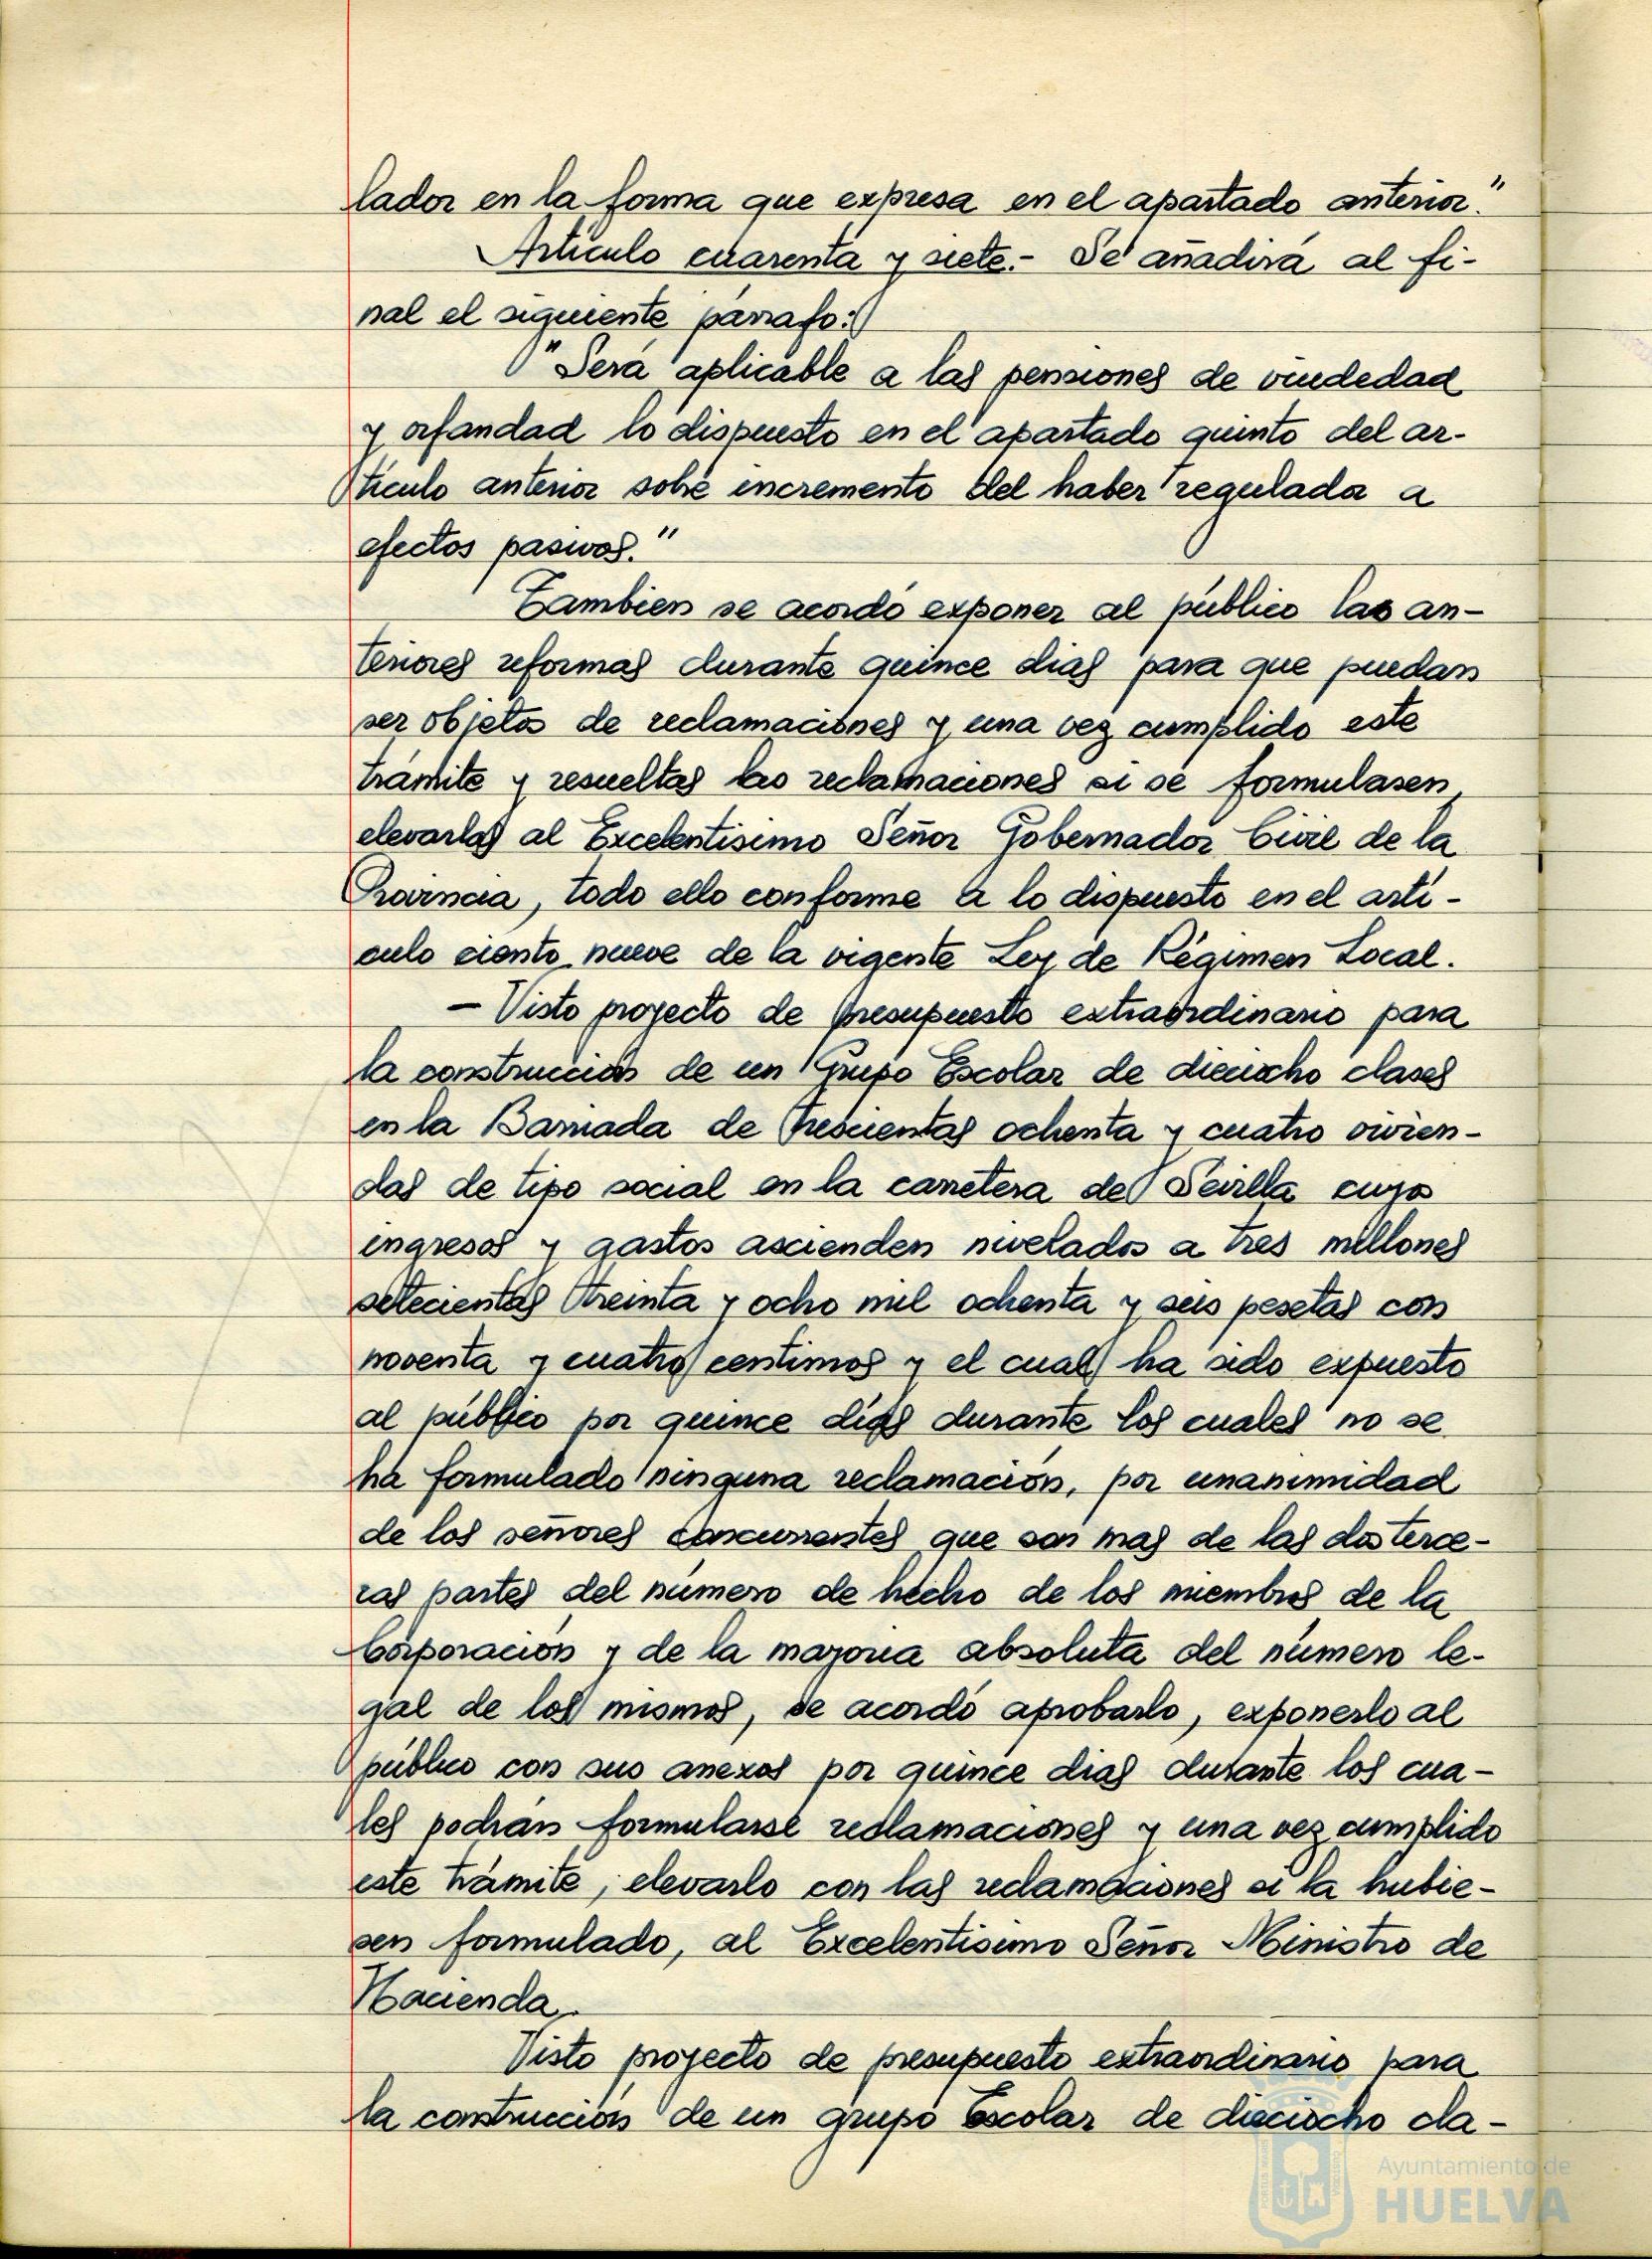 lador en la forma que expresa en el apartado anterior."
Artículo cuarenta y siete.- Se añadirá al fi-
nal el siguiente párrafo:
"Será aplicable a las pensiones de viudedad
y orfandad lo dispuesto en el apartado quinto del ar-
tículo anterior sobre incremento del haber regulador a
efectos pasivos."
Tambien se acordó exponer al público las an-
teriores reformas durante quince dias para que puedan
ser objeto de reclamaciones y una vez cumplido este
trámite y resueltas las reclamaciones si se formulasen,
elevarlas al Excelentisimo Señor Gobernador Civil de la
Provincia, todo ello conforme a lo dispuesto en el artí-
culo ciento nueve de la vigente Ley de Régimen Local.
- Visto proyecto de presupuesto extraordinario para
la construcción de un Grupo Escolar de dieciocho clases
en la Barriada de trescientas ochenta y cuatro vivien-
das de tipo social en la carretera de Sevilla cuyos
ingresos y gastos ascienden nivelados a tres millones
setecientas treinta y ocho mil ochenta y seis pesetas con
noventa y cuatro centimos y el cual ha sido expuesto
al público por quince días durante los cuales no se
ha formulado ninguna reclamación, por unanimidad
de los señores concurrentes que son mas de las dos terce-
ras partes del número de hecho de los miembros de la
Corporación y de la mayoria absoluta del número le-
gal de los mismos, se acordó aprobarlo, exponerlo al
público con sus anexos por quince dias durante los cua-
les podrán formularse reclamaciones y una vez cumplido
este trámite, elevarlo con las reclamaciones si la hubie-
sen formulado, al Excelentisimo Señor Ministro de
Hacienda.
Visto proyecto de presupuesto extraordinario para
la construcción de un grupo Escolar de dieciocho cla-
Ayuntamiento de
HUELVA